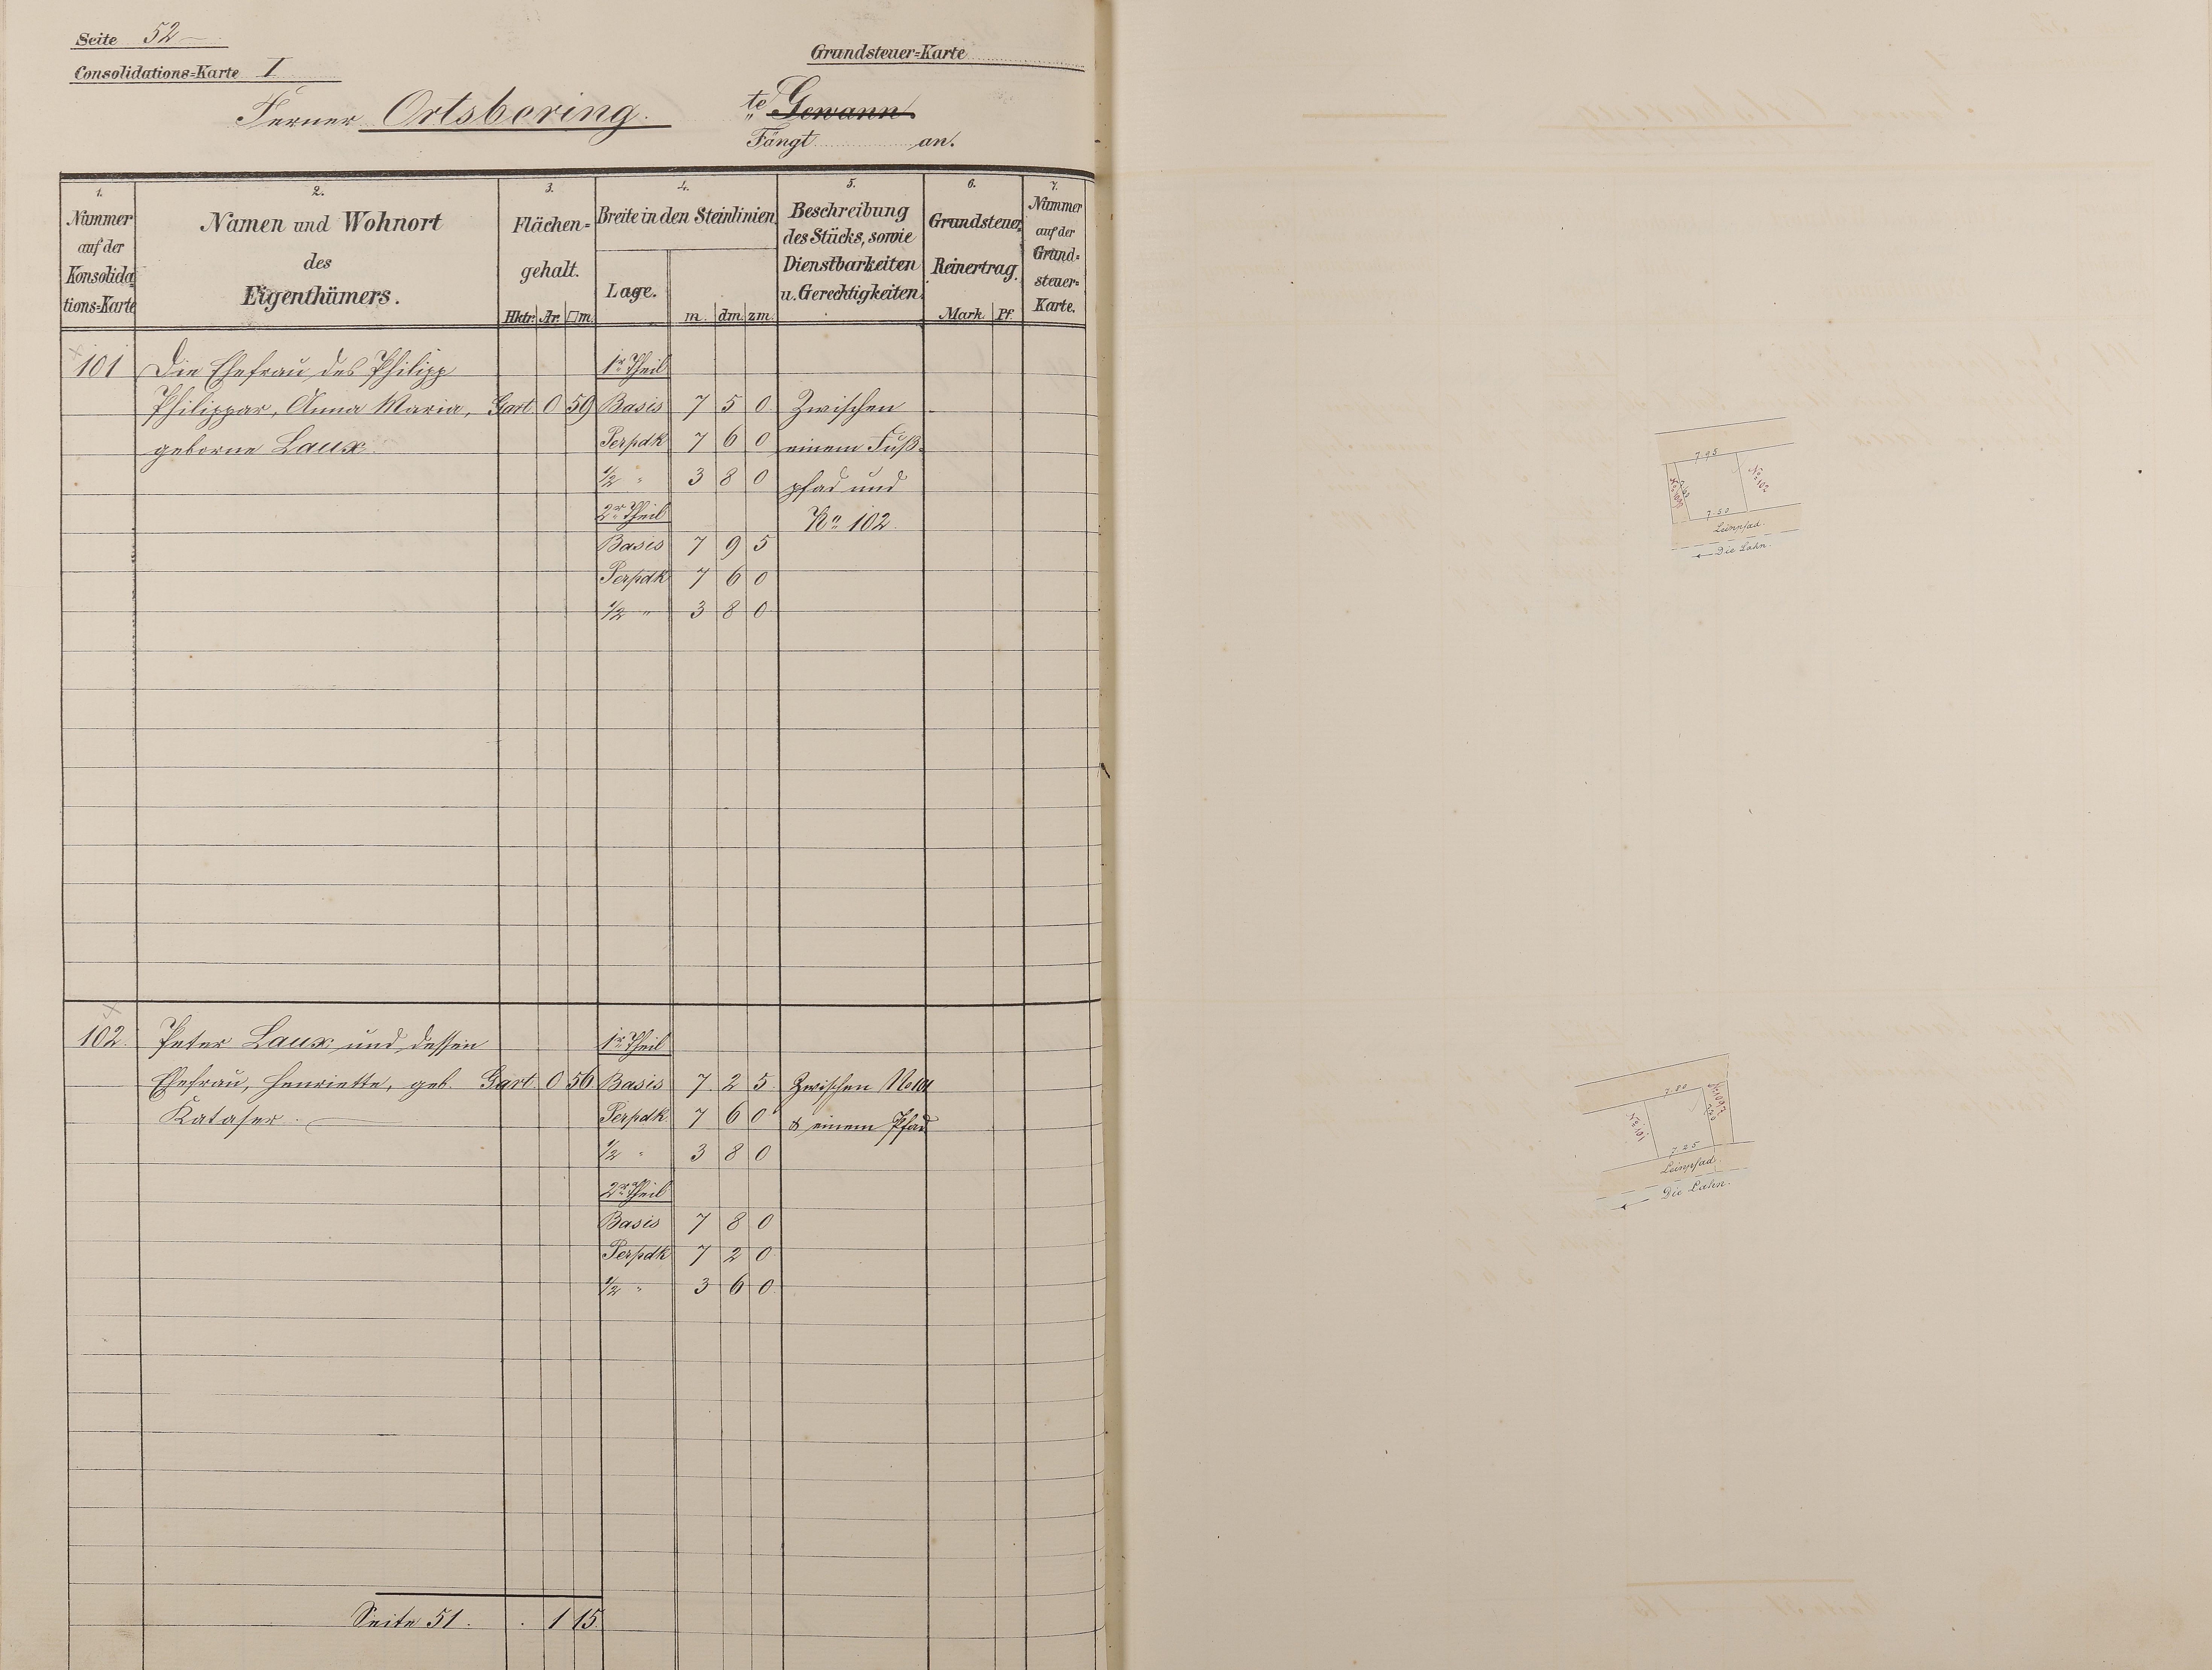 Seite 52
Consolidations=Karte I
Grundsteuer=Karte
Ferner Ortsbering. te Gewann
Fängt an.
1. 2. 3. 4. 5. 6. 7.
Nummer auf der Konsolida-tions=Karte
Namen und Wohnort
des
Eigenthümers.
Flächen=
gehalt.
Hktr. Ar. □m.
Breite in den Steinlinien.
Lage.
m. dm. zm.
Beschreibung
des Stücks, sowie
Dienstbarkeiten
u. Gerechtigkeiten.
Grundsteuer-
Reinertrag.
Mark Pf.
Nummer
auf der
Grund=
steuer=
Karte.
101 Die Ehefrau des Philipp 1r Theil
Philippar, Anna Maria, Gart. 0 59 Basis 7 5 0 Zwischen
geborne Laux. Perpdk 7 6 0 einem Fuß-
1/2 " 3 8 0 pfad und
2r Theil No 102.
Basis 7 9 5
Perpdk 7 6 0
1/2 " 3 8 0
102. Peter Laux und dessen 1r Theil
Ehefrau, Henriette, geb. Gart. 0 56 Basis 7 2 5 Zwischen No 101
Kataser. Perpdk 7 6 0 & einem Pfad
1/2 " 3 8 0
2r Theil
Basis 7 8 0
Perpdk 7 2 0
1/2 " 3 6 0
Seite 51. . 1 15
7.95
No 102
7.50
Leinpfad.
Die Lahn.
7.80
No 101
7.25
Leinpfad.
Die Lahn.